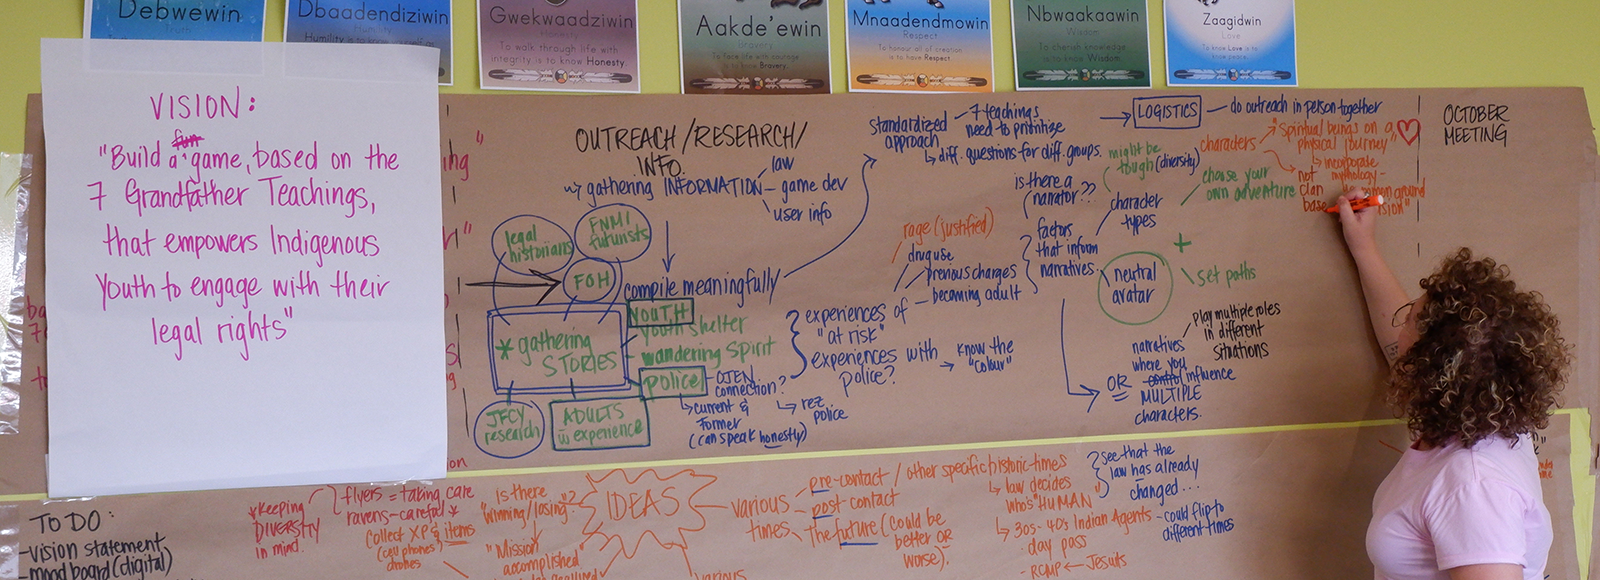 Debwewin
Truth
Dbaadendiziwin
Humility
Gwekwaadziwin
Honesty
To walk through life with
integrity is to know Honesty.
Aakde'ewin
Bravery
To face life with courage
is to know Bravery.
Mnaadendmowin
Respect
To honour all of creation
is to have Respect.
Nbwaakaawin
Wisdom
To cherish knowledge
is to know Wisdom.
Zaagidwin
Love
To know Love is to
VISION:
fun
"Build a game, based on the
7 Grandfather Teachings,
that empowers Indigenous
Youth to engage with their
legal rights"
OUTREACH/RESEARCH/
INFO.
gathering INFORMATION
law
game dev
user info
legal
historians
FNMI
futurists
FOH
compile meaningfully
* gathering
STORIES
YOUTH
youth shelter
wandering spirit
police
OJEN
connection?
current &
former
(can speak honestly)
rez
police
JFCY
research
ADULTS
w experience
experiences of
"at risk"
experiences with
police?
know the
"colour"
rage (justified)
drug use
previous charges
becoming adult
standardized
approach
7 teachings
need to prioritize
diff. questions for diff. groups.
LOGISTICS
do outreach in person together
is there a
narrator??
factors
that inform
narratives
might be
tough (diversity)
character
types
characters
"spiritual beings on a
physical journey"
incorporate
mythology
not
clan
base
choose your
own adventure
neutral
avatar
+
set paths
play multiple roles
in different
situations
OR
narratives
where you
control influence
MULTIPLE
characters.
OCTOBER
MEETING
TO DO:
-vision statement
-mood board (digital)
*keeping
DIVERSITY
in mind.
flyers = taking care
ravens - careful *
collect XP & items
(cell phones)
drones
is there
"winning/losing"?
"Mission
accomplished"
IDEAS
various
times
pre-contact / other specific historic times
post contact
the future (could be
better OR
worse).
law decides
who's "HUMAN"
30s-40s Indian Agents
day pass
- RCMP ← Jesuits
see that the
law has already
changed...
- could flip to
different times
various